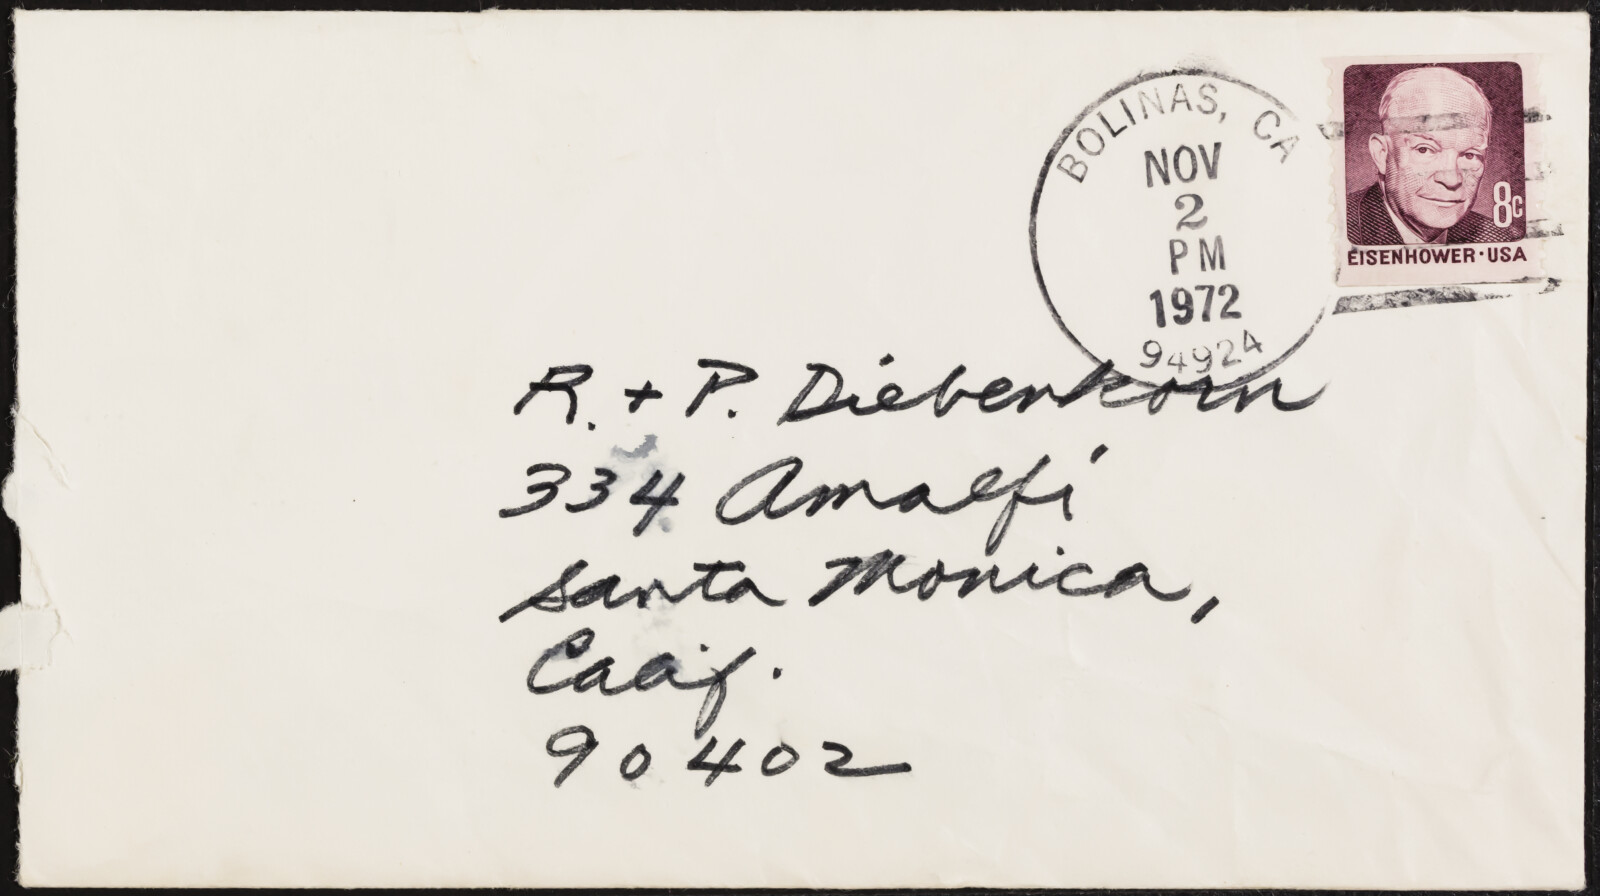 BOLINAS, CA
NOV
2
PM
1972
94924
8c
EISENHOWER · USA
R. + P. Diebenkorn
334 Amalfi
Santa Monica,
Calif.
90402